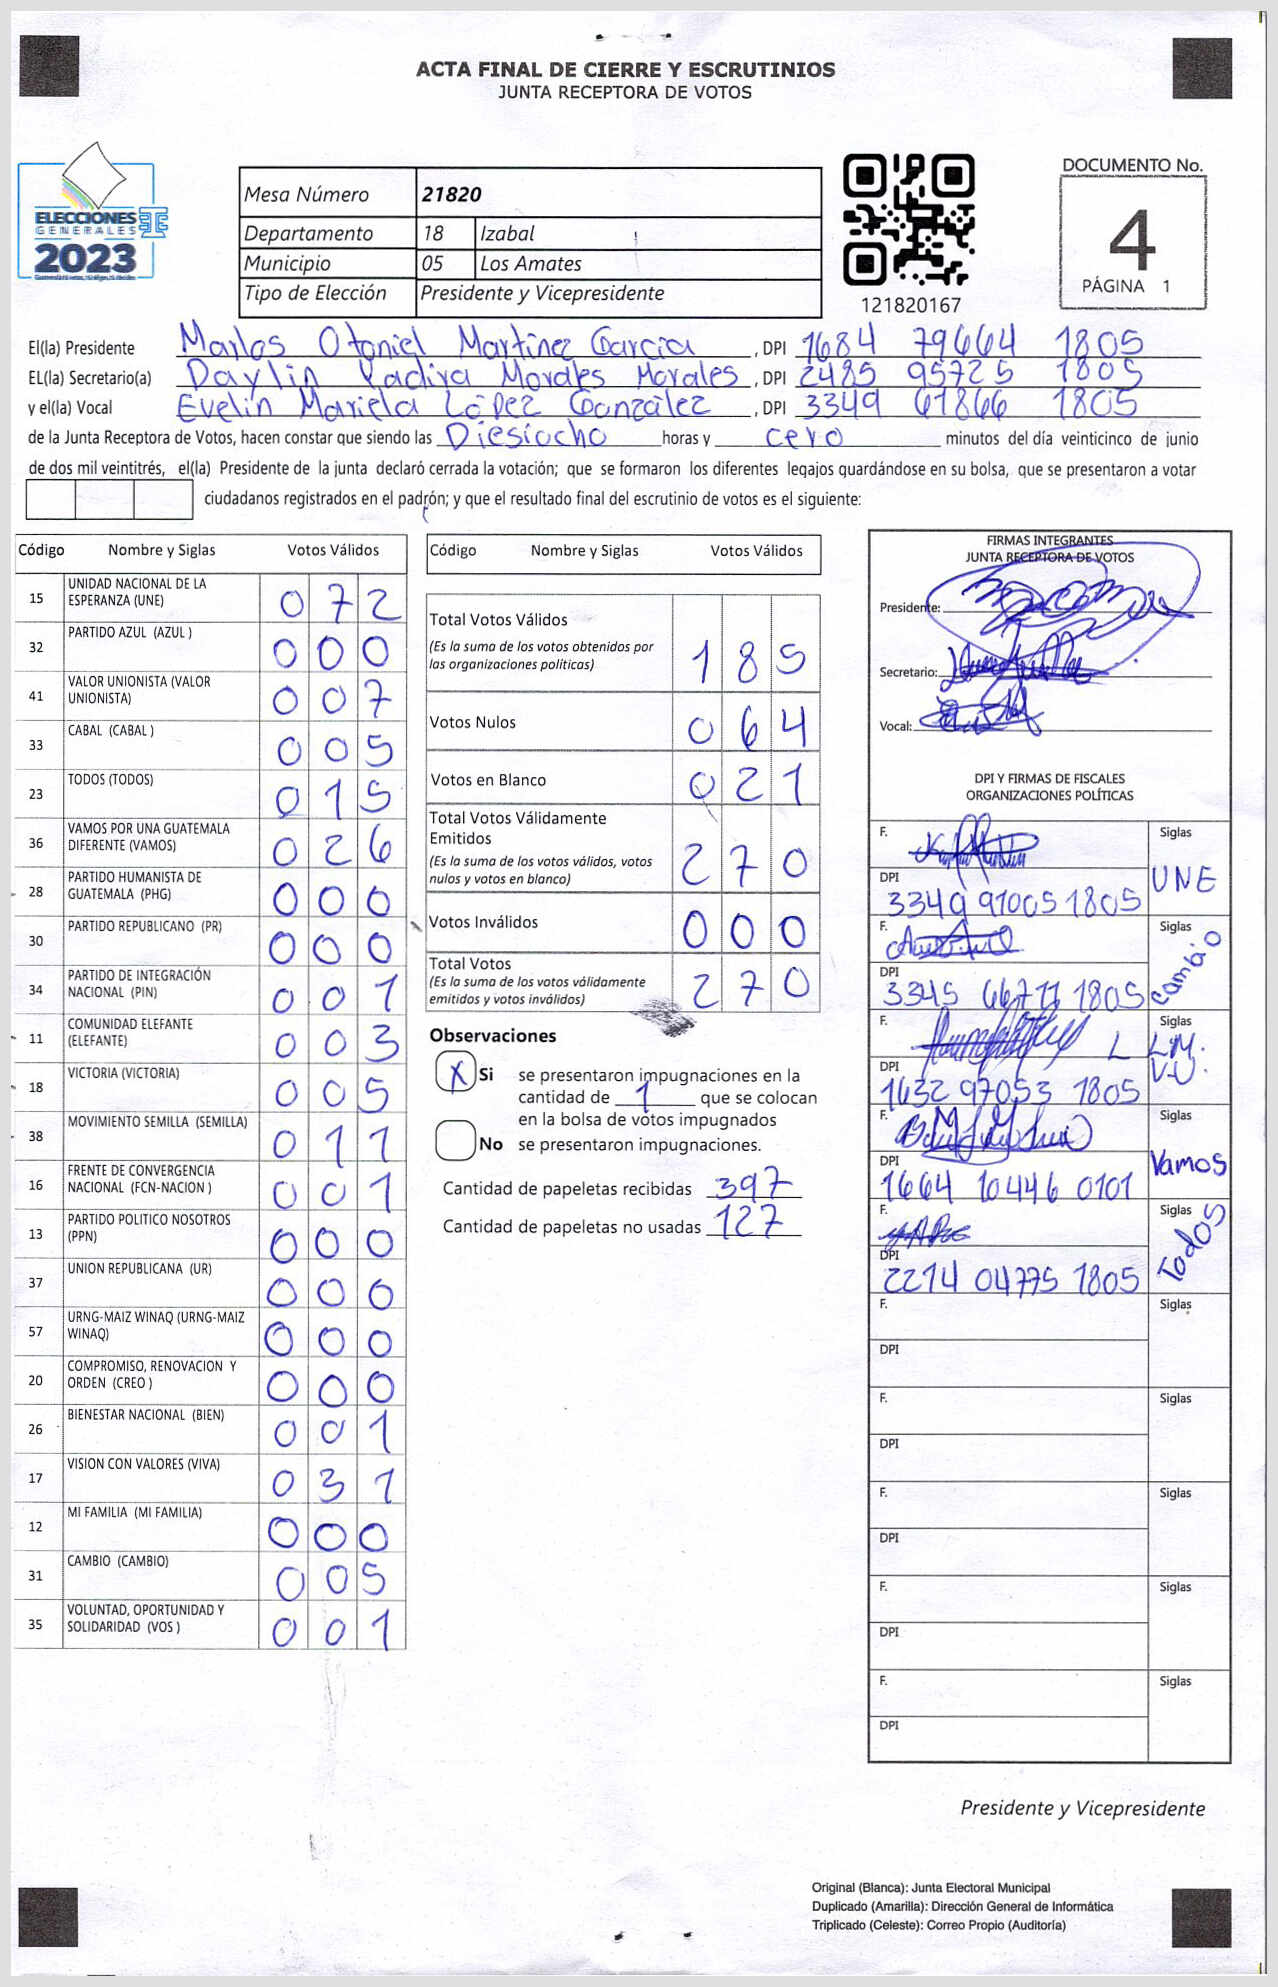 ACTA FINAL DE CIERRE Y ESCRUTINIOS
JUNTA RECEPTORA DE VOTOS
ELECCIONES
GENERALES
2023
Mesa Número 21820
Departamento 18 Izabal
Municipio 05 Los Amates
Tipo de Elección Presidente y Vicepresidente
121820167
DOCUMENTO No.
4
PÁGINA 1
El(la) Presidente Marlos Otoniel Martinez Garcia, DPI 1684 79664 1805
EL(la) Secretario(a) Daylin Yadira Morales Morales, DPI 2485 95725 1805
y el(la) Vocal Evelin Mariela López González, DPI 3349 61866 1805
de la Junta Receptora de Votos, hacen constar que siendo las Diesiocho horas y cero minutos del día veinticinco de junio
de dos mil veintitrés, el(la) Presidente de la junta declaró cerrada la votación; que se formaron los diferentes legajos guardándose en su bolsa, que se presentaron a votar
ciudadanos registrados en el padrón; y que el resultado final del escrutinio de votos es el siguiente:
Código Nombre y Siglas Votos Válidos
15 UNIDAD NACIONAL DE LA ESPERANZA (UNE) 072
32 PARTIDO AZUL (AZUL ) 000
41 VALOR UNIONISTA (VALOR UNIONISTA) 007
33 CABAL (CABAL ) 005
23 TODOS (TODOS) 015
36 VAMOS POR UNA GUATEMALA DIFERENTE (VAMOS) 026
28 PARTIDO HUMANISTA DE GUATEMALA (PHG) 000
30 PARTIDO REPUBLICANO (PR) 000
34 PARTIDO DE INTEGRACIÓN NACIONAL (PIN) 001
11 COMUNIDAD ELEFANTE (ELEFANTE) 003
18 VICTORIA (VICTORIA) 005
38 MOVIMIENTO SEMILLA (SEMILLA) 011
16 FRENTE DE CONVERGENCIA NACIONAL (FCN-NACION ) 001
13 PARTIDO POLITICO NOSOTROS (PPN) 000
37 UNION REPUBLICANA (UR) 000
57 URNG-MAIZ WINAQ (URNG-MAIZ WINAQ) 000
20 COMPROMISO, RENOVACION Y ORDEN (CREO ) 000
26 BIENESTAR NACIONAL (BIEN) 001
17 VISION CON VALORES (VIVA) 031
12 MI FAMILIA (MI FAMILIA) 000
31 CAMBIO (CAMBIO) 005
35 VOLUNTAD, OPORTUNIDAD Y SOLIDARIDAD (VOS ) 001
Código Nombre y Siglas Votos Válidos
Total Votos Válidos
(Es la suma de los votos obtenidos por las organizaciones políticas) 185
Votos Nulos 064
Votos en Blanco 021
Total Votos Válidamente Emitidos
(Es la suma de los votos válidos, votos nulos y votos en blanco) 270
Votos Inválidos 000
Total Votos
(Es la suma de los votos válidamente emitidos y votos inválidos) 270
Observaciones
X Si se presentaron impugnaciones en la
cantidad de 1 que se colocan
en la bolsa de votos impugnados
No se presentaron impugnaciones.
Cantidad de papeletas recibidas 397
Cantidad de papeletas no usadas 127
FIRMAS INTEGRANTES
JUNTA RECEPTORA DE VOTOS
Presidente:
Secretario:
Vocal:
DPI Y FIRMAS DE FISCALES
ORGANIZACIONES POLÍTICAS
F. Siglas
DPI UNE
3349 91005 1805
F. Siglas
DPI Cambio
3345 66711 1805
F. Siglas
DPI
1632 97053 1805
F.
DPI Vamos
1664 10446 0101
F. Siglas
DPI Todos
2214 04775 1805
F. Siglas
DPI
F. Siglas
DPI
F. Siglas
DPI
F. Siglas
DPI
F. Siglas
DPI
Presidente y Vicepresidente
Original (Blanca): Junta Electoral Municipal
Duplicado (Amarilla): Dirección General de Informática
Triplicado (Celeste): Correo Propio (Auditoría)